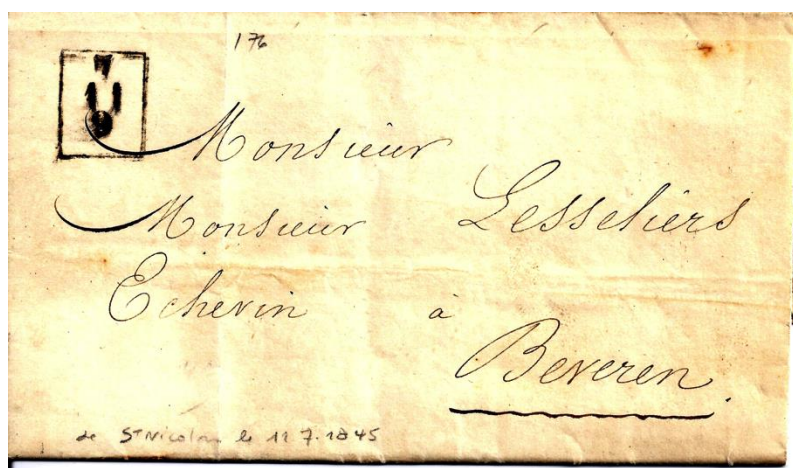 176
7
11
Monsieur
Monsieur Lesseliers
Echevin à
Beveren
de St Nicolas le 11.7.1845